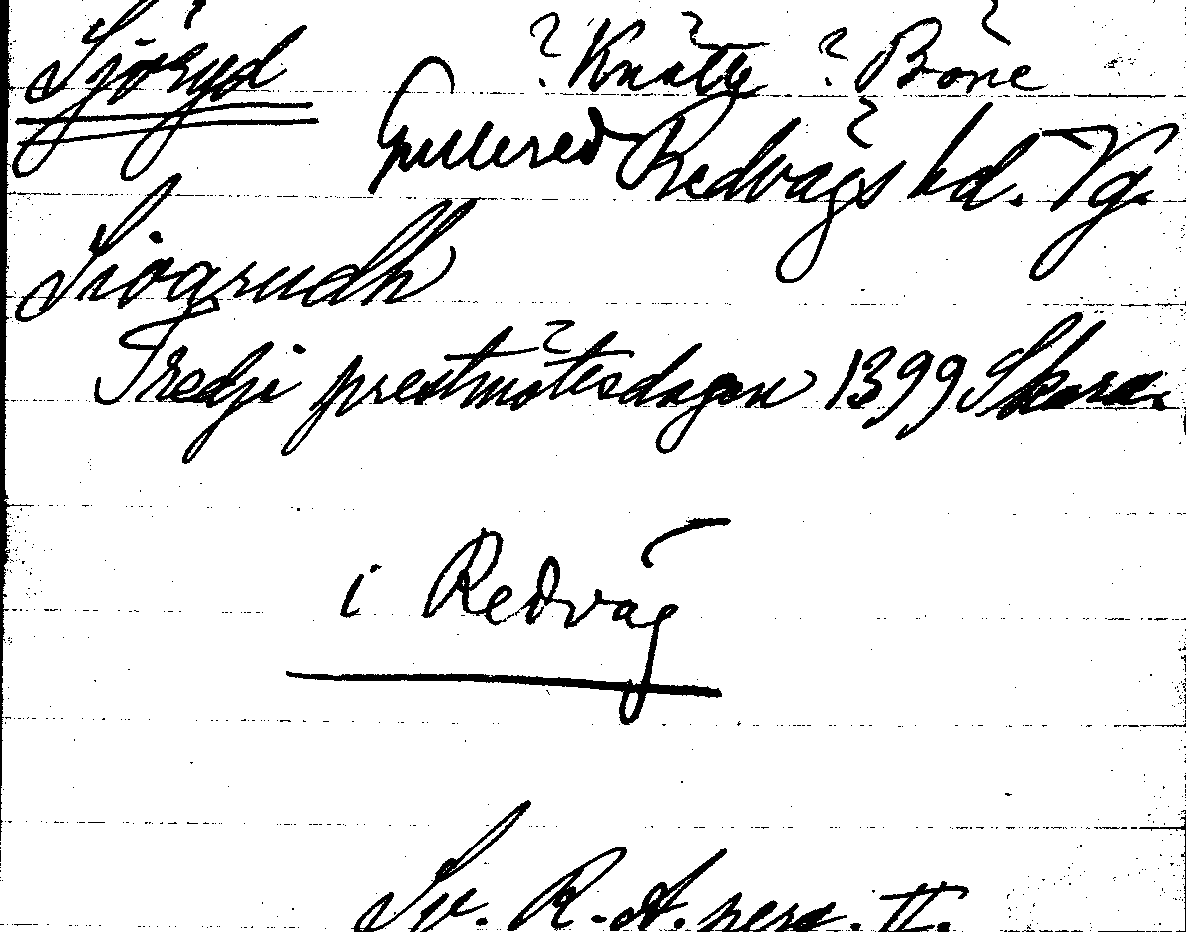 Sjöryd ? Knätte ? Böne
Gullered Redvägs hd. Vg.
Siögrudh
Tredje prestmötesdagen 1399 Skara.
i Redväg
Sv. R.-A. perg. II.